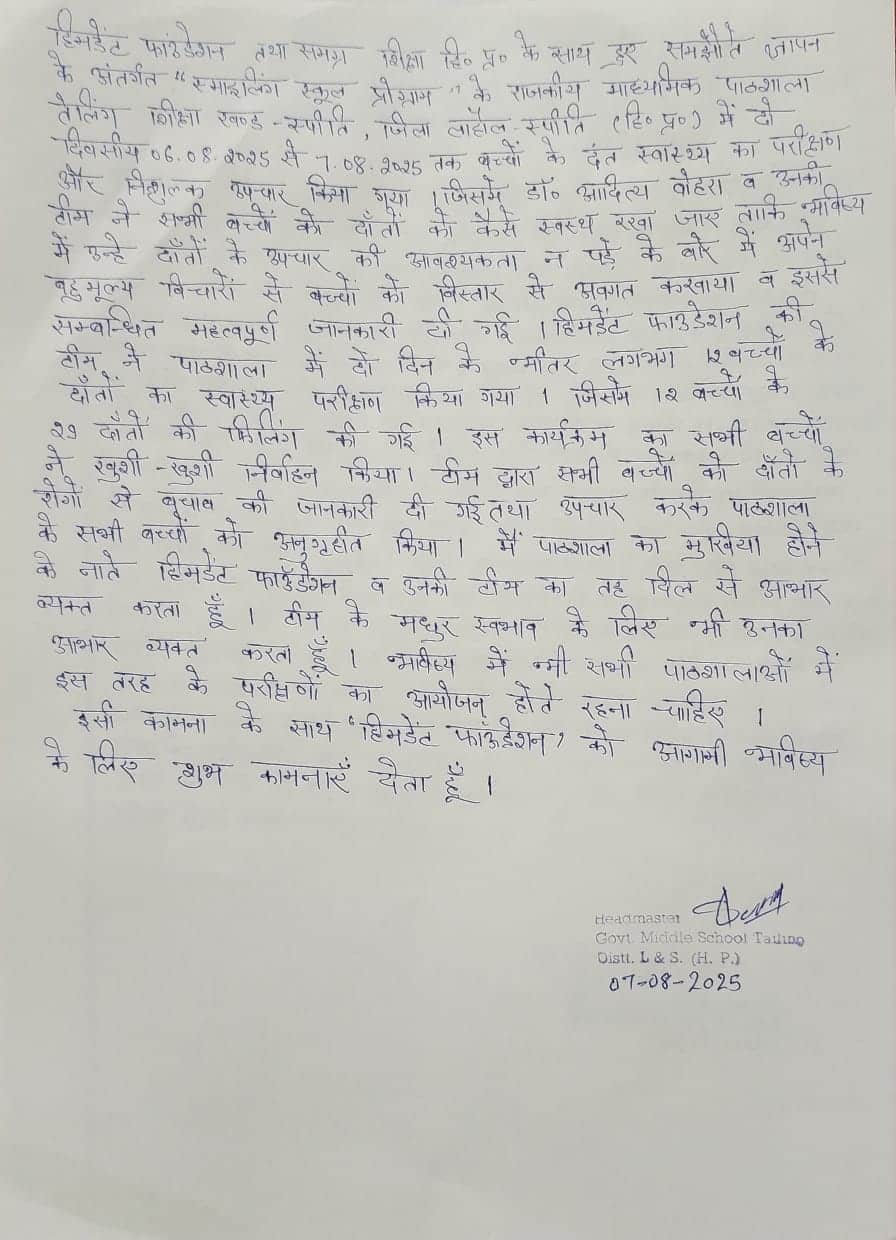 हिमडेंट फांउडेशन तथा समग्र शिक्षा हि० प्र० के साथ हुए समझौते ज्ञापन
के अंतर्गत "स्माइलिंग स्कूल प्रोग्राम" के राजकीय माध्यमिक पाठशाला
तेलिंग शिक्षा खण्ड - स्पीति, जिला लाहौल-स्पीति (हि० प्र०) में दो
दिवसीय 06.08.2025 से 7.08.2025 तक बच्चों के दंत स्वास्थ्य का परीक्षण
और निशुल्क उपचार किया गया । जिसमे डॉ० आदित्य वोहरा व उनकी
टीम ने सभी बच्चों को दाँतों को कैसे स्वस्थ रखा जाए ताकि भविष्य
में उन्हे दाँतों के उपचार की आवश्यकता न पड़े के बारे में अपने
बहुमूल्य विचारों से बच्चों को विस्तार से अवगत करवाया व इससे
सम्बन्धित महत्वपूर्ण जानकारी दी गई । हिमडेंट फाउडेशन की
टीम ने पाठशाला में दो दिन के भीतर लगभग 12 बच्चों के
दाँतों का स्वास्थ्य परीक्षण किया गया । जिसमे 12 बच्चों के
29 दाँतों की फिलिंग की गई । इस कार्यक्रम का सभी बच्चों
ने खुशी-खुशी निर्वाहन किया। टीम द्वारा सभी बच्चों को दाँतो के
रोगों से बचाव की जानकारी दी गई तथा उपचार करके पाठशाला
के सभी बच्चों को अनुगृहीत किया । मैं पाठशाला का मुखिया होने
के नाते हिमडेंट फाउँडेशन व उनकी टीम का तह दिल से आभार
व्यक्त करता हूँ । टीम के मधुर स्वभाव के लिए भी उनका
आभार व्यक्त करता हूँ । भविष्य में भी सभी पाठशालाओं में
इस तरह के परीक्षणों का आयोजन होते रहना चाहिए ।
इसी कामना के साथ 'हिमडेंट फाँउडेशन' को आगामी भविष्य
के लिए शुभ कामनाएँ देता हूँ ।
Headmaster
Govt. Middle School Tailing
Distt. L & S. (H. P.)
07-08-2025